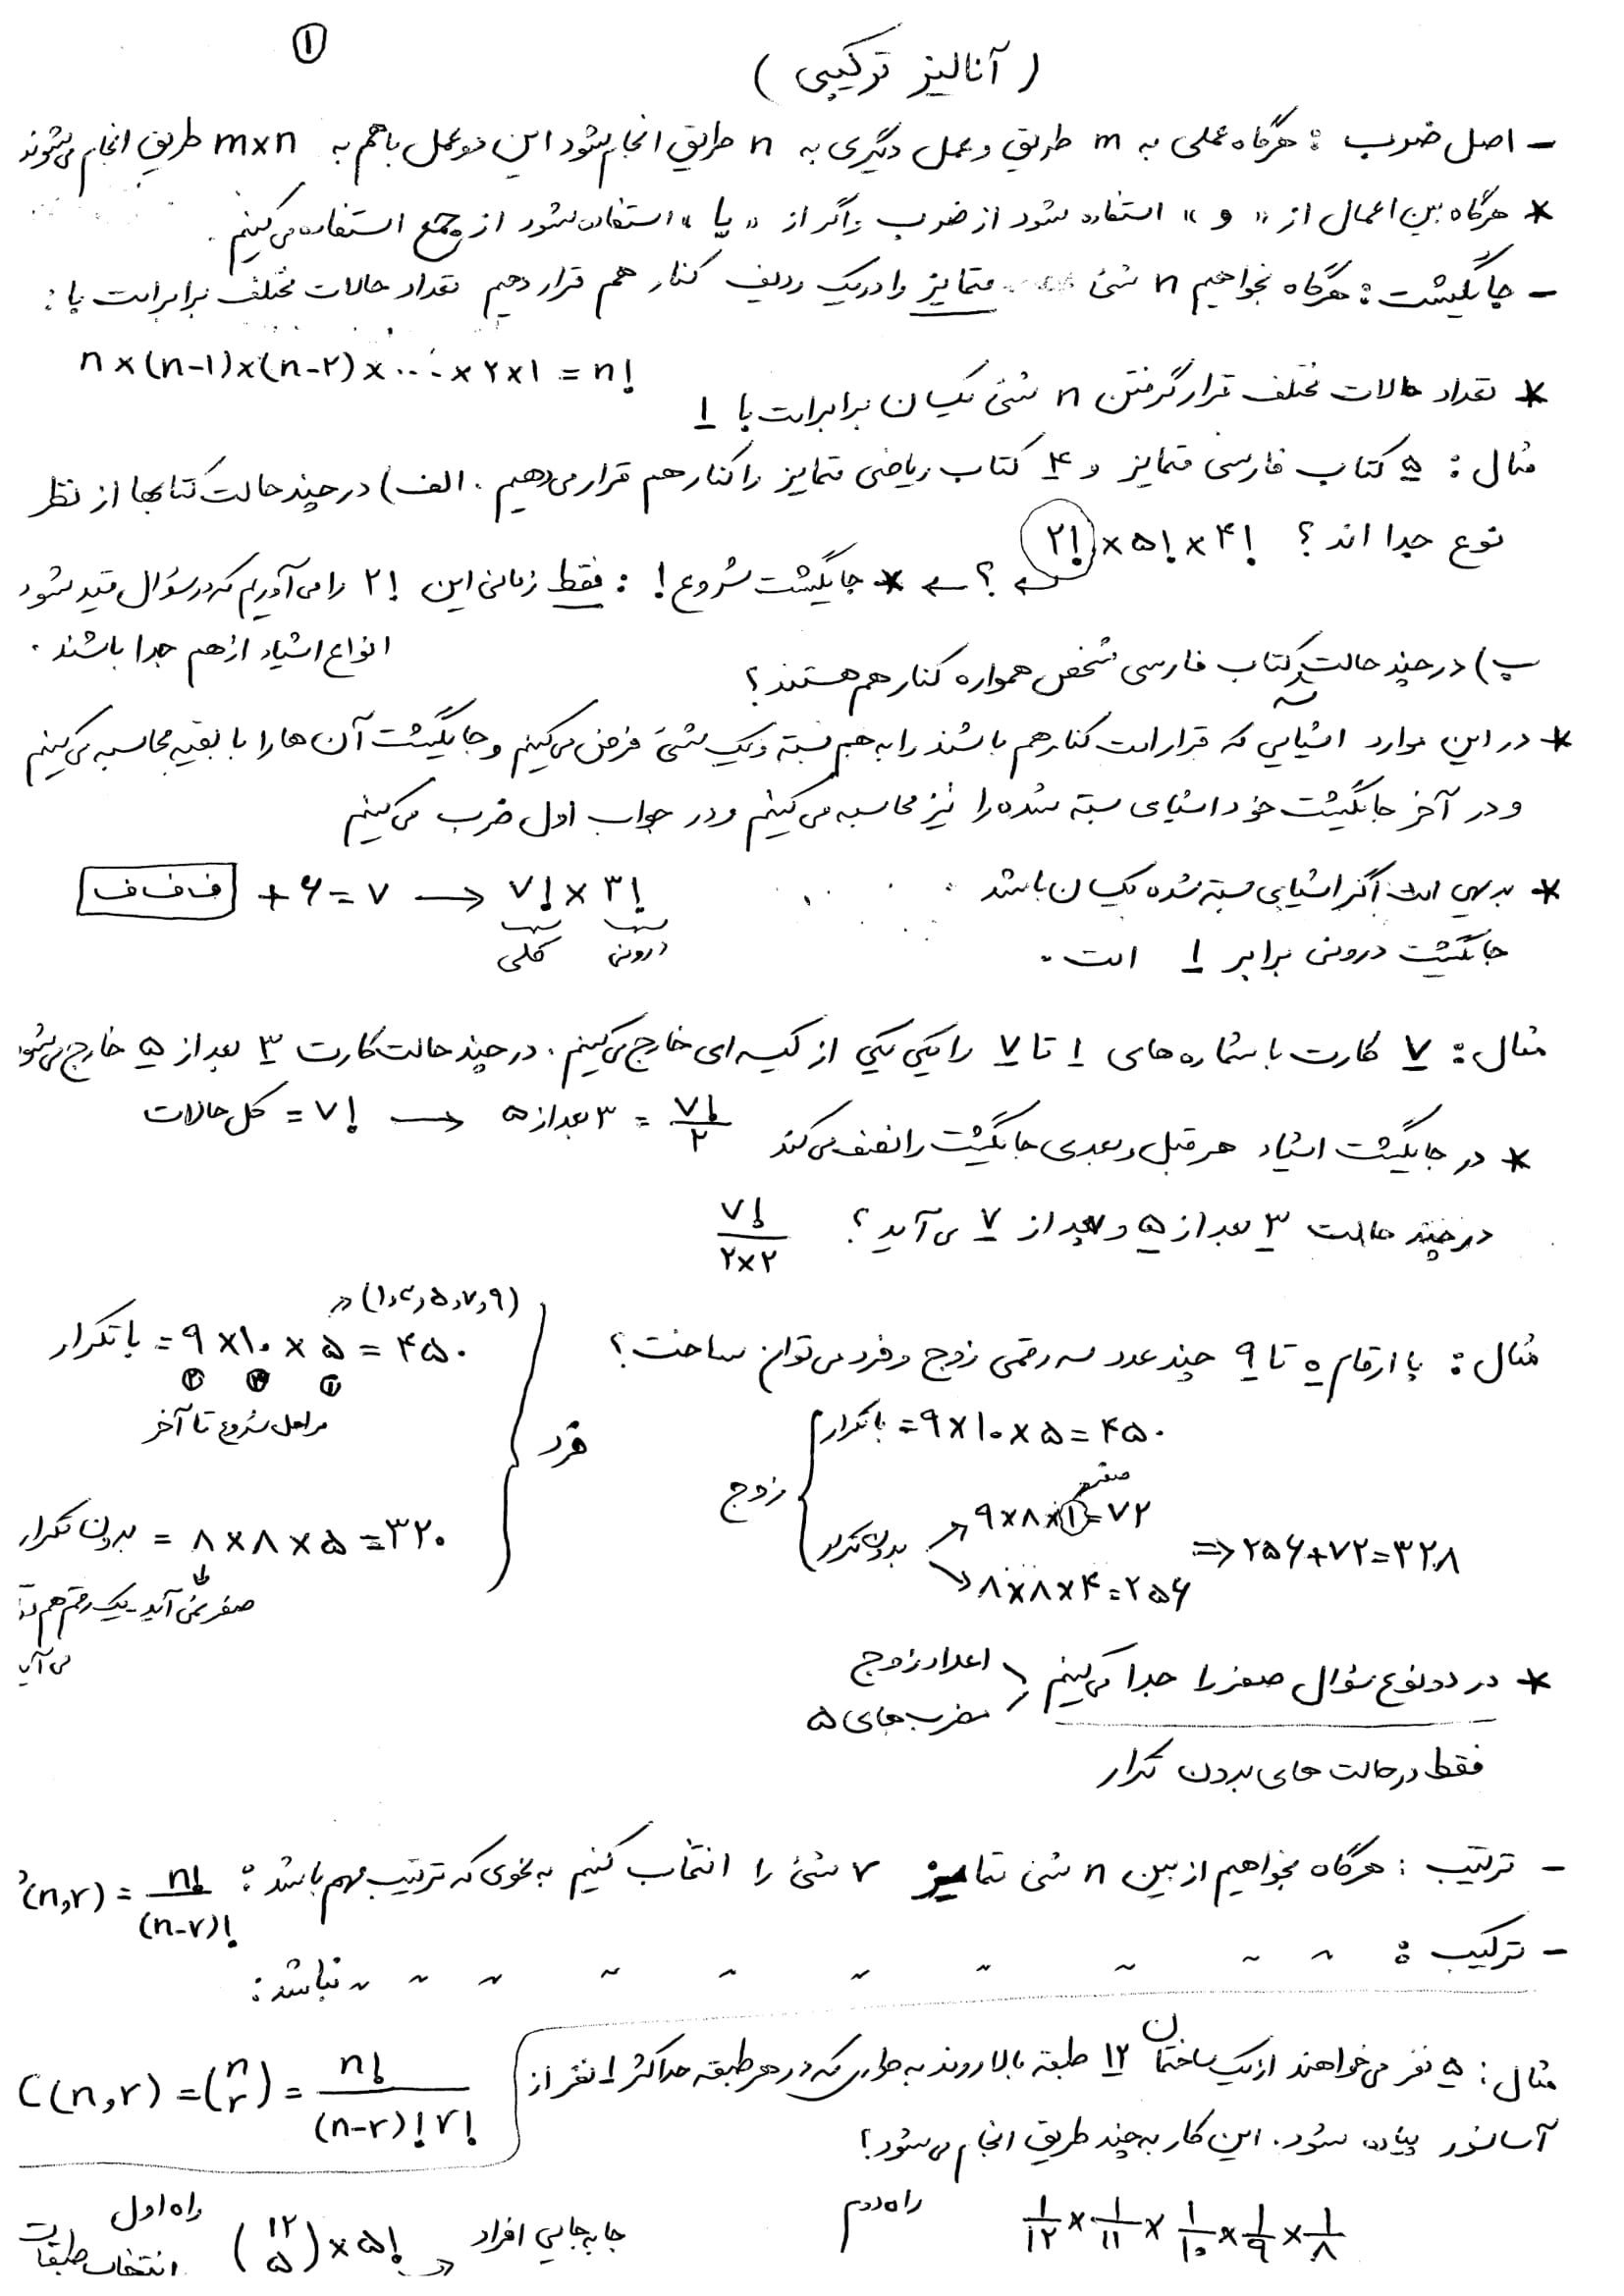 ①
( آنالیز ترکیبی )
- اصل ضرب : هرگاه عملی به m طریق و عمل دیگری به n طریق انجام شود این دو عمل باهم به m×n طریق انجام می‌شوند
* هرگاه بین اعمال از « و » استفاده شود از ضرب و اگر از « یا » استفاده شود از جمع استفاده می‌کنیم .
- جایگشت : هرگاه بخواهیم n شیٔ متمایز را در یک ردیف کنار هم قرار دهیم تعداد حالات مختلف برابر است با :
n×(n-۱)×(n-۲)×...×۲×۱ = n!
* تعداد حالات مختلف قرار گرفتن n شیٔ یکسان برابر است با ۱
مثال : ۵ کتاب فارسی متمایز و ۴ کتاب ریاضی متمایز را کنار هم قرار می‌دهیم . الف) در چند حالت کتابها از نظر
نوع جدا اند ؟ ۲! × ۵! × ۴!
؟ ← * جایگشت شروع ! : فقط زمانی این ۲! را می‌آوریم که در سؤال قید شود
انواع اشیاء از هم جدا باشند .
پ) در چند حالت سه کتاب فارسی مشخص همواره کنار هم هستند ؟
* در این موارد اشیایی که قرار است کنار هم باشند را به هم بسته و یک شیٔ فرض می‌کنیم و جایگشت آن ها را با بقیه محاسبه می‌کنیم
و در آخر جایگشت خود اشیای بسته شده را نیز محاسبه می‌کنیم و در جواب اول ضرب می‌کنیم
* بدیهی است اگر اشیای بسته شده یکسان باشد
ف ف ف + ۶ = ۷ → ۷! × ۳!
کلی درونی
جایگشت درونی برابر ۱ است .
مثال : ۷ کارت با شماره های ۱ تا ۷ را یکی یکی از کیسه ای خارج می‌کنیم . در چند حالت کارت ۳ بعد از ۵ خارج می‌شود
کل حالات = ۷! → ۳ بعد از ۵ = ۷!/۲
* در جایگشت اشیاء هر قبل و بعدی جایگشت را نصف می‌کند
در چند حالت ۳ بعد از ۵ و بعد از ۷ می آید ؟ ۷!/۲×۲
مثال : با ارقام ۰ تا ۹ چند عدد سه رقمی زوج و فرد می‌توان ساخت ؟
زوج
با تکرار = ۹×۱۰×۵=۴۵۰
صفر
بدون تکرار
۹×۸×۱=۷۲
۸×۸×۴=۲۵۶
⇒ ۲۵۶+۷۲=۳۲۸
فرد
(۱,۳,۵,۷,۹)
با تکرار = ۹×۱۰×۵ = ۴۵۰
مراحل شروع تا آخر
بدون تکرار = ۸×۸×۵=۳۲۰
صفر نمی آید - یک رقم هم
* در دو نوع سؤال صفر را جدا می‌کنیم
اعداد زوج
مضرب های ۵
فقط در حالت های بدون تکرار
- ترتیب : هرگاه بخواهیم از بین n شیٔ متمایز r شیٔ را انتخاب کنیم به نحوی که ترتیب مهم باشد : (n,r) = n!/(n-r)!
- ترکیب : ~ ~ ~ ~ ~ ~ ~ ~ ~ ~ نباشد :
C(n,r) = (n r) = n!/(n-r)!r!
مثال : ۵ نفر می‌خواهند از یک ساختمان ۱۲ طبقه بالا روند به طوری که در هر طبقه حداکثر ۱ نفر از
آسانسور پیاده شود . این کار به چند طریق انجام می‌شود ؟
راه اول
انتخاب طبقات (۱۲ ۵) × ۵! → جا به جایی افراد
راه دوم
۱/۱۲ × ۱/۱۱ × ۱/۱۰ × ۱/۹ × ۱/۸